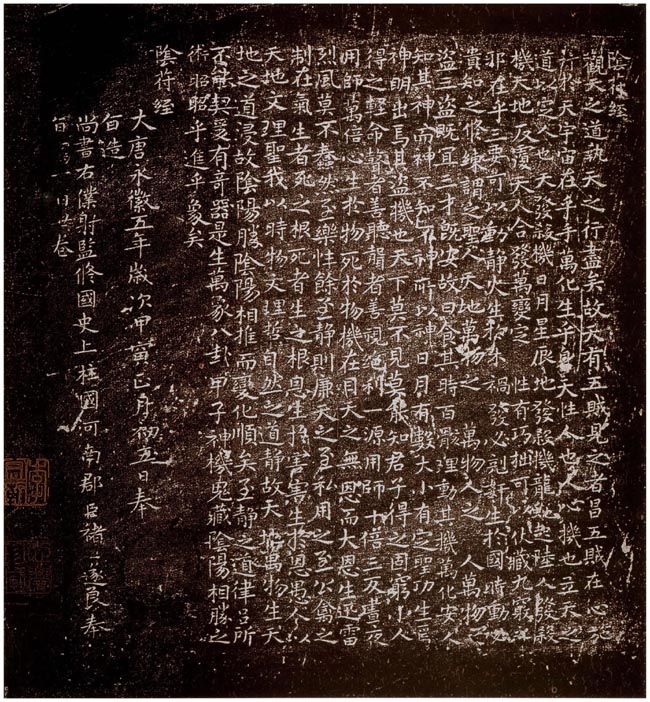 陰符經
觀天之道執天之行盡矣故天有五賊見之者昌五賊在心施
行於天宇宙在乎手萬化生乎身天性人也人心機也立天之
道以定人也天發殺機日月星辰地發殺機龍虵起陸人發殺
機天地反覆天人合發萬變定性有巧拙可以伏藏九竅之
邪在乎三要可以動靜火生於木禍發必剋姧生於國時動必
貴知之修練謂之聖人天地萬物之萬物人之人萬物之
盜三盜既宜三才既安故曰食其時百骸理動其機萬化安人
知其神而神不知不神所以神日月有數大小有定聖功生焉
神明出焉其盜機也天下莫不見莫能知君子得之固窮小人
得之輕命瞽者善聽聾者善視絕利一源用師十倍三反晝夜
用師萬倍心生於物死於物機在目天之無恩而大恩生迅雷
烈風莫不蠢然至樂性餘至靜則廉天之至私用之至公禽之
制在氣生者死之根死者生之根恩生於害害生於恩愚人以
天地文理聖我以時物文理哲自然之道靜故天地萬物生天
地之道浸故陰陽勝陰陽相推而變化順矣至靜之道律呂所
不能契爰有奇器是生萬象八卦甲子神機鬼藏陰陽相勝之
術昭昭乎進乎象矣
陰符經
大唐永徽五年歲次甲寅正月初五日奉
旨造
尚書右僕射監修國史上柱國河南郡臣褚遂良奉
旨日卷